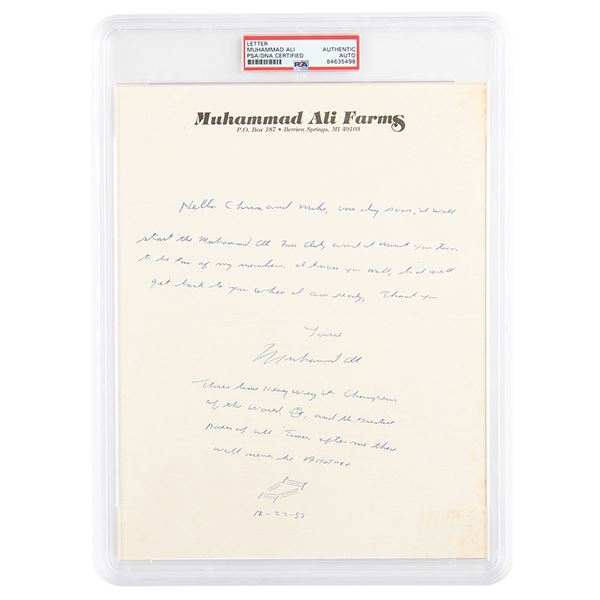 LETTER
MUHAMMAD ALI
PSA/DNA CERTIFIED
AUTHENTIC
AUTO
PSA
84635498
Muhammad Ali Farms
P.O. Box 187 • Berrien Springs, MI 49103
Hello Chris and mike, one day soon, i will
start the Muhammad Ali Fan Club and i want you two,
to be of my members. i know you will, i will
get back to you when i am ready, Thank you
Yours
Muhammad Ali
Three time Heavy weight Champion
of the World, and the Greatest
of all Times, after me there
will never be Another
12-22-